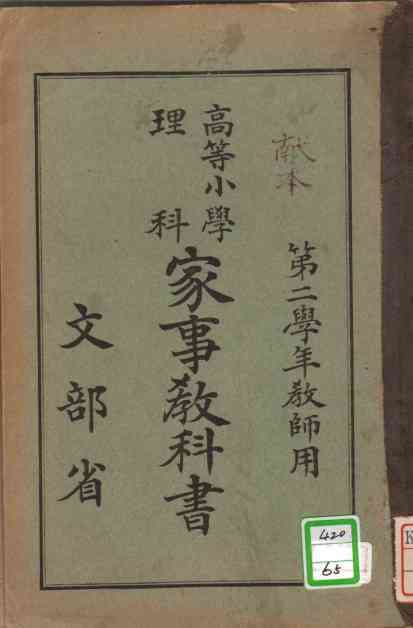 献本
第二學年教師用
高等小學
理科
家事教科書
文部省
420
65
K